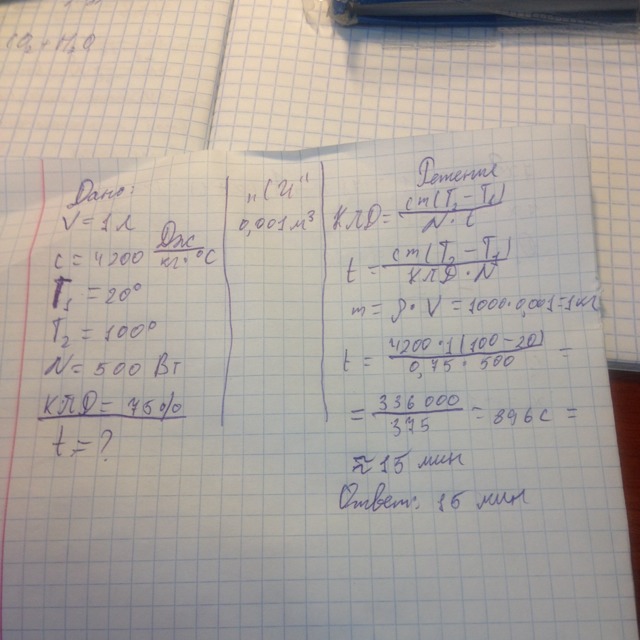 CO₂ + H₂O
Дано:
V = 1 л
c = 4200 Дж/кг·°C
T₁ = 20°
T₂ = 100°
N = 500 Вт
КПД = 75%
t = ?
"СИ"
0,001 м³
Решения
КПД = cm(T₂ - T₁)/N·t
t = cm(T₂ - T₁)/КПД·N
m = ρ·V = 1000·0,001 = 1 кг
t = 4200·1(100 - 20)/0,75·500 =
= 336 000/375 = 896 c =
≈ 15 мин
Ответ: 15 мин